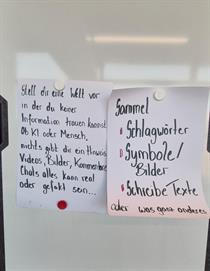 Stell dir eine Welt vor
in der du keiner
Information trauen kannst
Ob KI oder Mensch,
nichts gibt dir ein Hinweis
Videos, Bilder, Kommentare
Chats alles kann real
oder gefakt sein...
Sammel
Schlagwörter
Symbole/
Bilder
Schreibe Texte
oder was ganz anderes